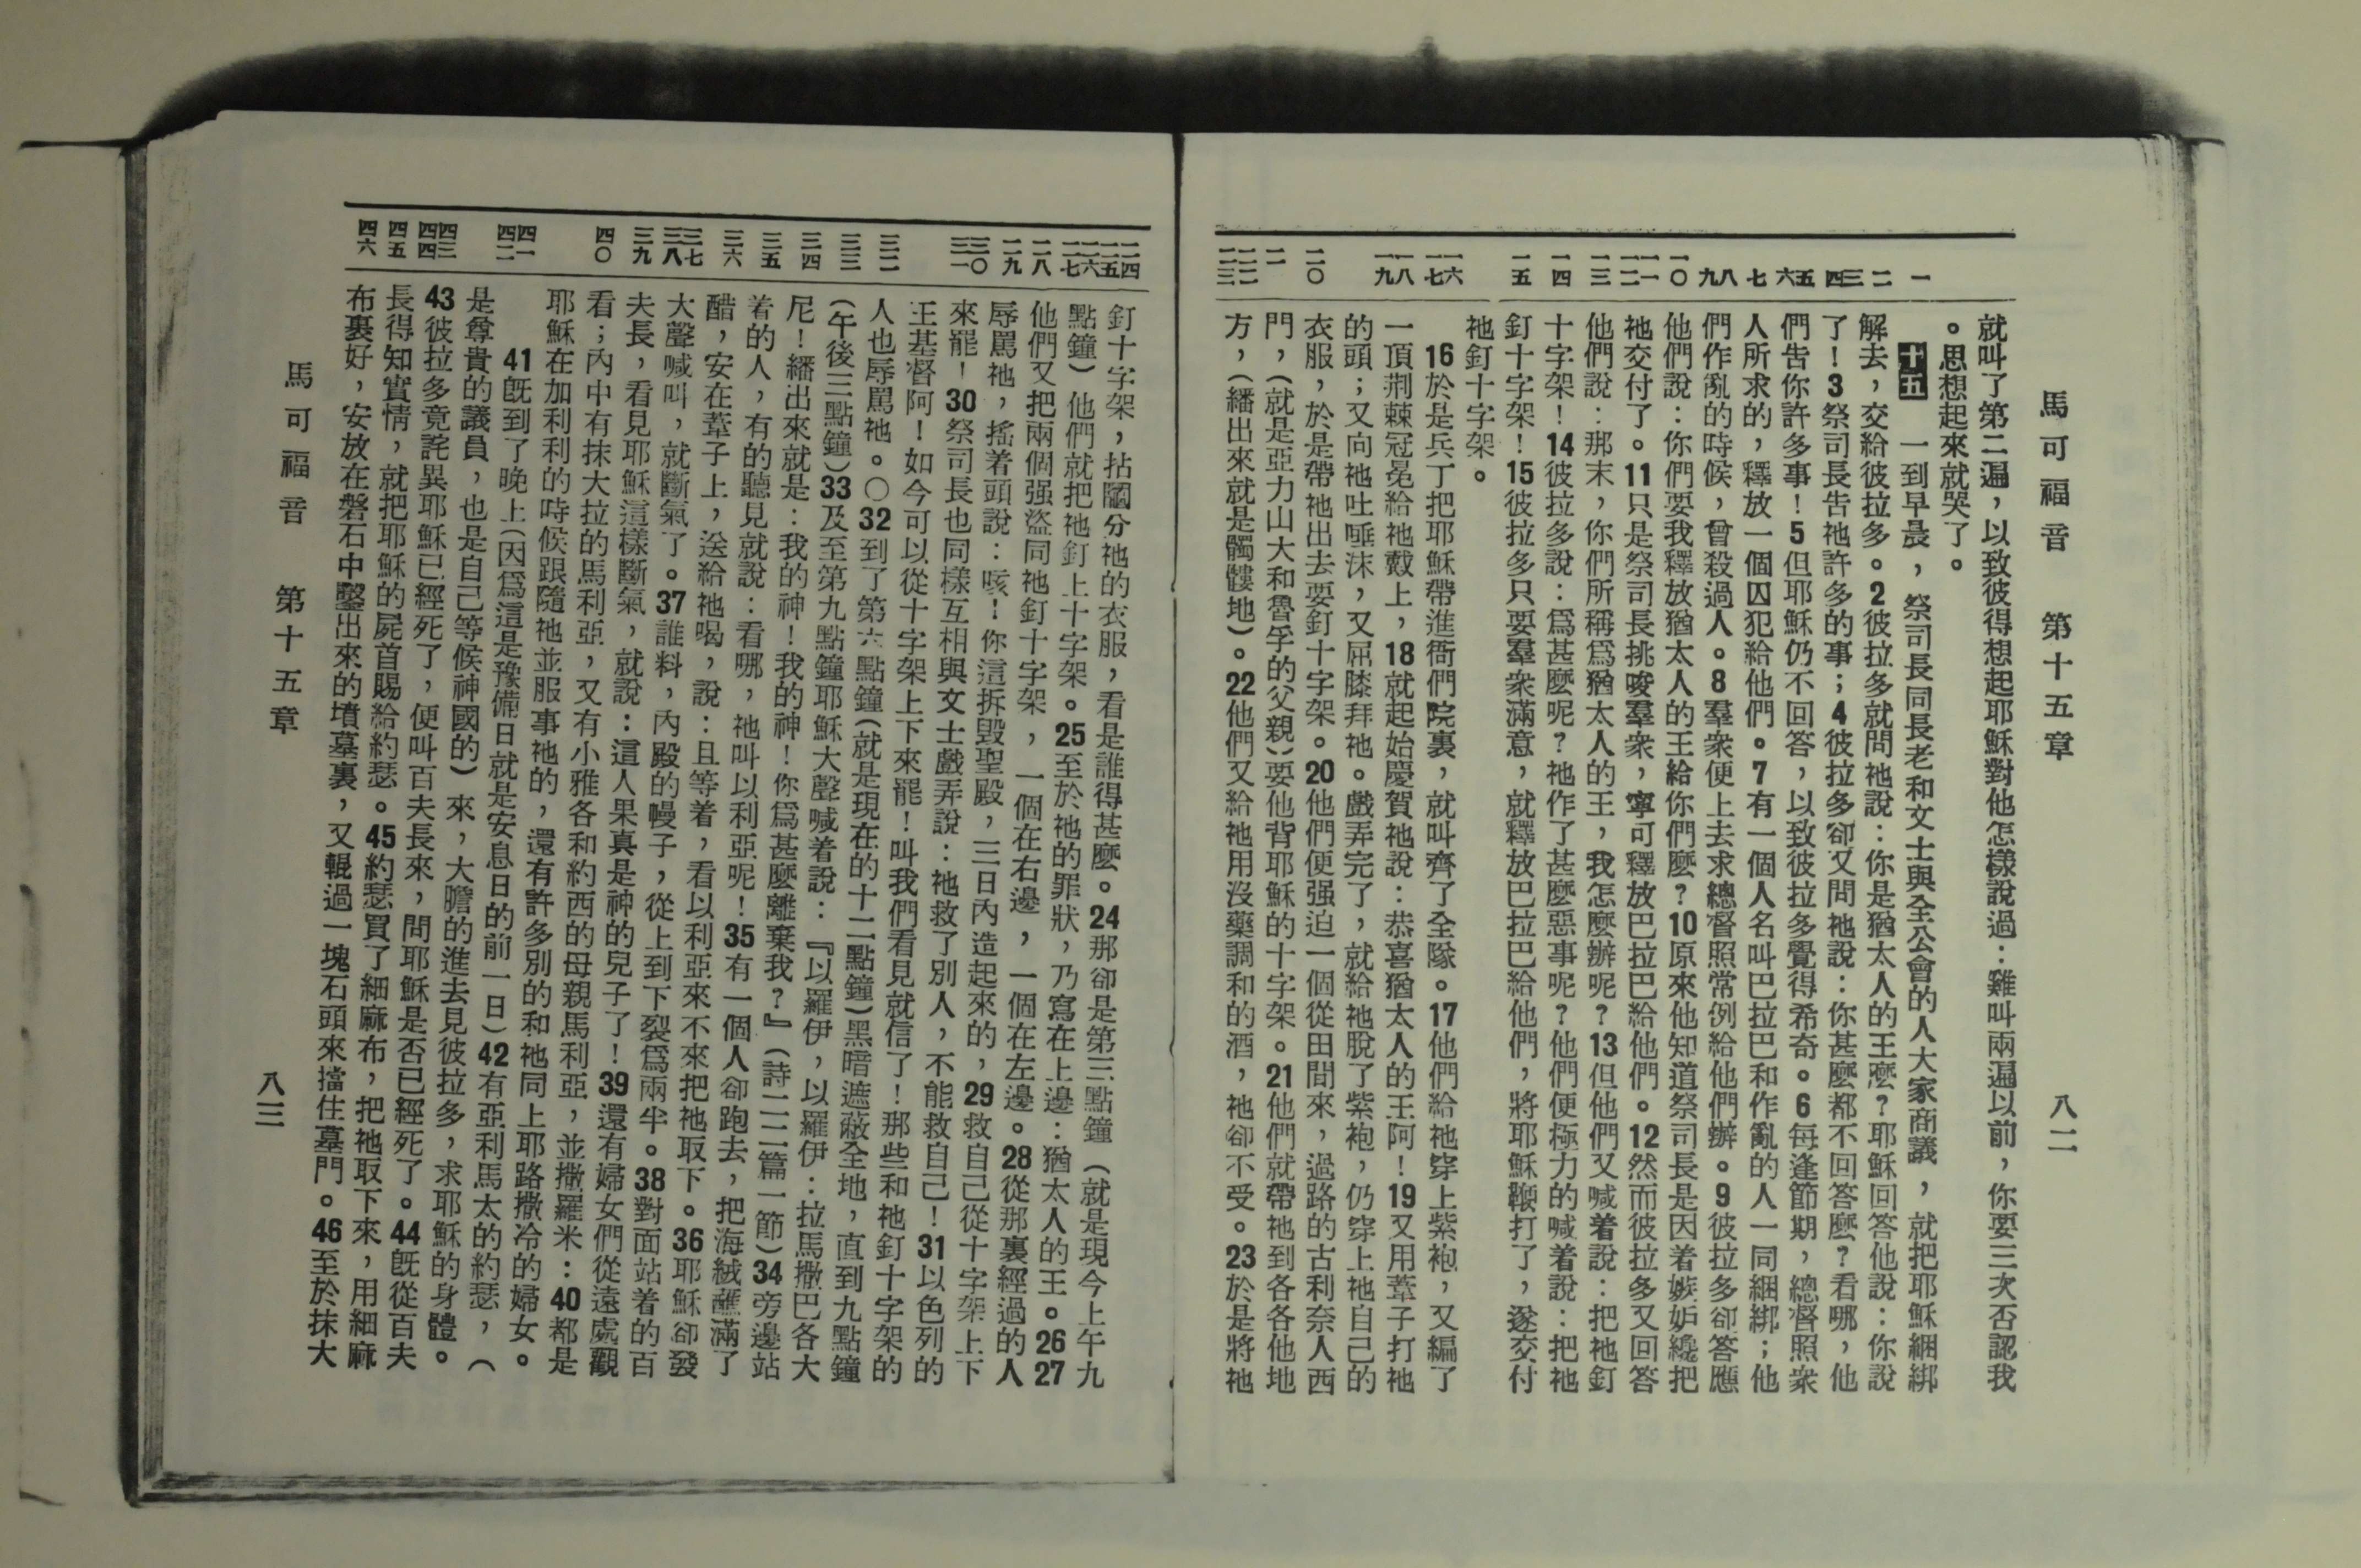 馬可福音　第十五章　八二
一
二
三四
五六
七
八九
一〇
一一一二
一三
一四
一五
一六一七
一八一九
二〇
二一
二二二三
就叫了第二遍，以致彼得想起耶穌對他怎樣說過：雞叫兩遍以前，你要三次否認我
。思想起來就哭了。
十五　一到早晨，祭司長同長老和文士與全公會的人大家商議，就把耶穌綑綁
解去，交給彼拉多。2彼拉多就問祂說：你是猶太人的王麼？耶穌回答他說：你說
了！3祭司長告祂許多的事；4彼拉多卻又問祂說：你甚麼都不回答麼？看哪，他
們告你許多事！5但耶穌仍不回答，以致彼拉多覺得希奇。6每逢節期，總督照衆
人所求的，釋放一個囚犯給他們。7有一個人名叫巴拉巴和作亂的人一同綑綁；他
們作亂的時候，曾殺過人。8羣衆便上去求總督照常例給他們辦。9彼拉多卻答應
他們說：你們要我釋放猶太人的王給你們麼？10原來他知道祭司長是因着嫉妒纔把
祂交付了。11只是祭司長挑唆羣衆，寧可釋放巴拉巴給他們。12然而彼拉多又回答
他們說：那末，你們所稱爲猶太人的王，我怎麼辦呢？13但他們又喊着說：把祂釘
十字架！14彼拉多說：爲甚麼呢？祂作了甚麼惡事呢？他們便極力的喊着說：把祂
釘十字架！15彼拉多只要羣衆滿意，就釋放巴拉巴給他們，將耶穌鞭打了，遂交付
祂釘十字架。
16於是兵丁把耶穌帶進衙們院裏，就叫齊了全隊。17他們給祂穿上紫袍，又編了
一頂荆棘冠冕給祂戴上，18就起始慶賀祂說：恭喜猶太人的王阿！19又用葦子打祂
的頭；又向祂吐唾沫，又屈膝拜祂。戲弄完了，就給祂脫了紫袍，仍穿上祂自己的
衣服，於是帶祂出去要釘十字架。20他們便强迫一個從田間來，過路的古利奈人西
門，（就是亞力山大和魯孚的父親）要他背耶穌的十字架。21他們就帶祂到各各他地
方，（繙出來就是髑髏地）。22他們又給祂用沒藥調和的酒，祂卻不受。23於是將祂
二四二五
二六二七
二八
二九
三〇三一
三二
三三
三四
三五
三六
三七三八
三九
四〇
四一四二
四三四四
四五
四六
釘十字架，拈鬮分祂的衣服，看是誰得甚麼。24那卻是第三點鐘（就是現今上午九
點鐘）他們就把祂釘上十字架。25至於祂的罪狀，乃寫在上邊：猶太人的王。2627
他們又把兩個强盜同祂釘十字架，一個在右邊，一個在左邊。28從那裏經過的人
辱駡祂，搖着頭說：咳！你這拆毀聖殿，三日內造起來的，29救自己從十字架上下
來罷！30祭司長也同樣互相與文士戲弄說：祂救了別人，不能救自己！31以色列的
王基督阿！如今可以從十字架上下來罷！叫我們看見就信了！那些和祂釘十字架的
人也辱駡祂。〇32到了第六點鐘（就是現在的十二點鐘）黑暗遮蔽全地，直到九點鐘
（午後三點鐘）33及至第九點鐘耶穌大聲喊着說：『以羅伊，以羅伊：拉馬撒巴各大
尼！繙出來就是：我的神！我的神！你爲甚麼離棄我？』（詩二二篇一節）34旁邊站
着的人，有的聽見就說：看哪，祂叫以利亞呢！35有一個人卻跑去，把海絨蘸滿了
醋，安在葦子上，送給祂喝，說：且等着，看以利亞來不來把祂取下。36耶穌卻發
大聲喊叫，就斷氣了。37誰料，內殿的幔子，從上到下裂爲兩半。38對面站着的百
夫長，看見耶穌這樣斷氣，就說：這人果真是神的兒子了！39還有婦女們從遠處觀
看；內中有抹大拉的馬利亞，又有小雅各和約西的母親馬利亞，並撒羅米：40都是
耶穌在加利利的時候跟隨祂並服事祂的，還有許多別的和祂同上耶路撒冷的婦女。
41旣到了晚上（因爲這是豫備日就是安息日的前一日）42有亞利馬太的約瑟，（
是尊貴的議員，也是自己等候神國的）來，大膽的進去見彼拉多，求耶穌的身體。
43彼拉多竟詫異耶穌已經死了，便叫百夫長來，問耶穌是否已經死了。44旣從百夫
長得知實情，就把耶穌的屍首賜給約瑟。45約瑟買了細麻布，把祂取下來，用細麻
布裹好，安放在磐石中鑿出來的墳墓裏，又輥過一塊石頭來擋住墓門。46至於抹大
馬可福音　第十五章　八三